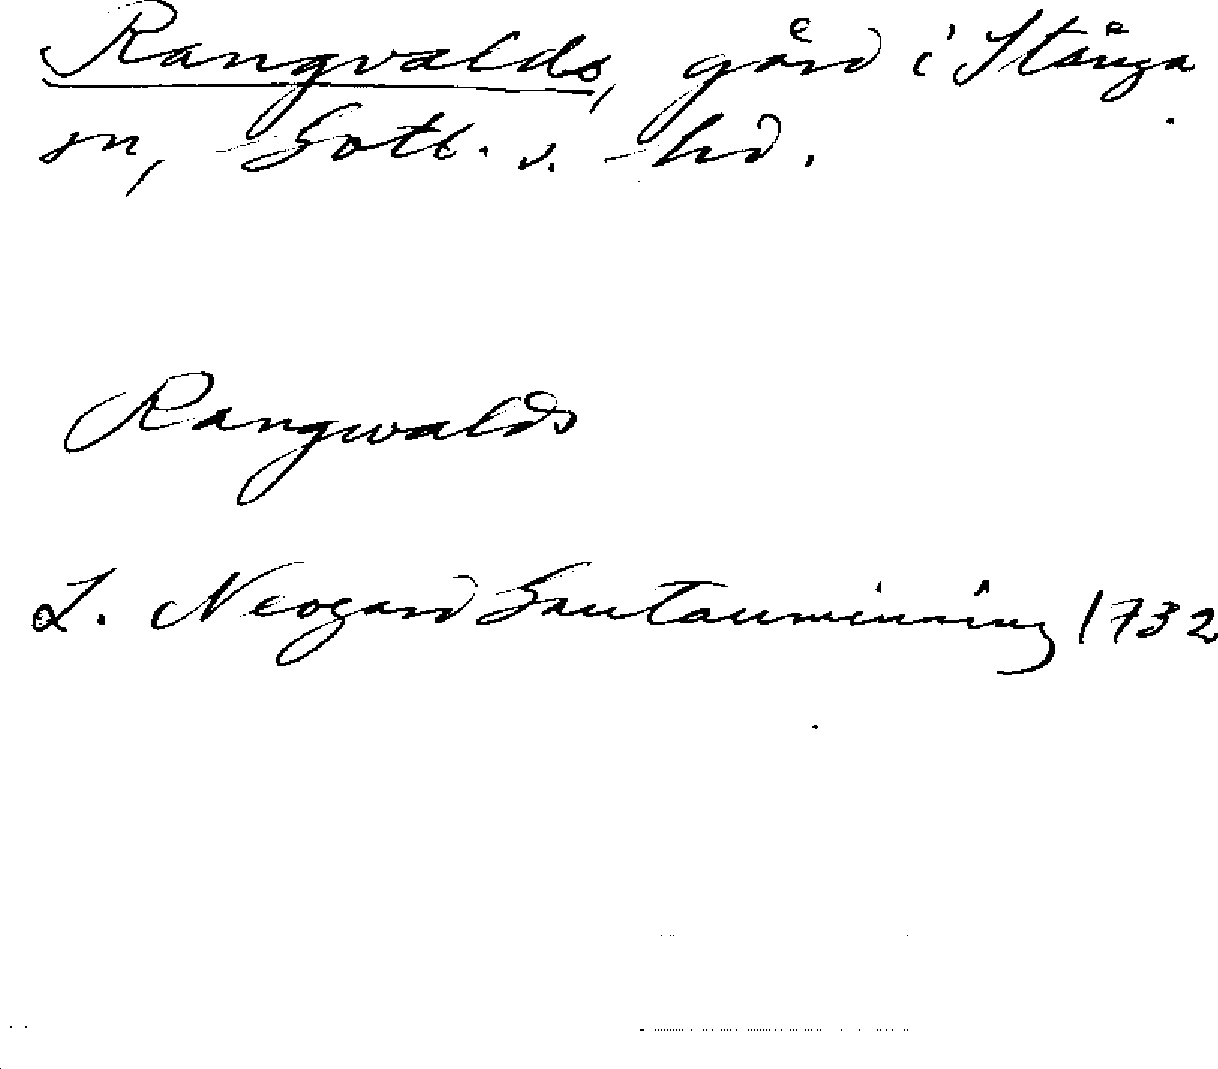 Rangvalds, gård i Stånga
sn, Gotl. s. hd.
Rangwalds
L. Neogard Gautauminning 1732